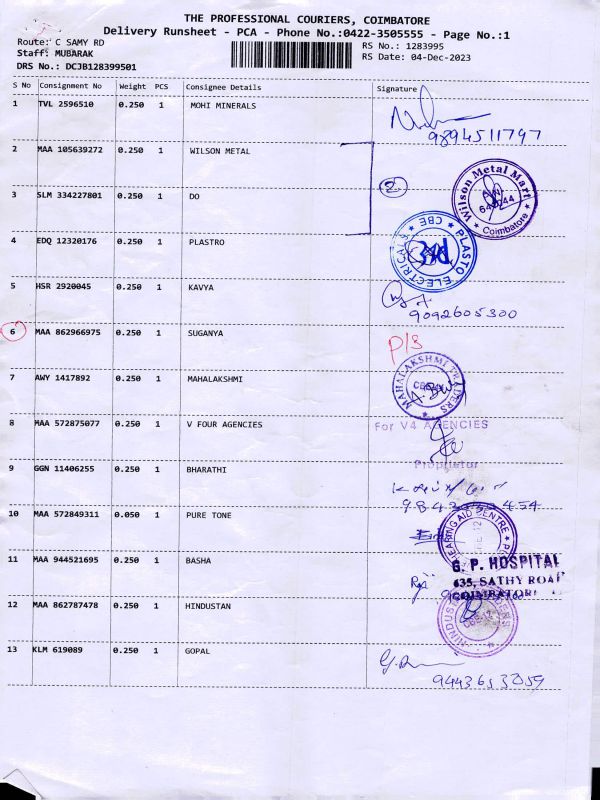 THE PROFESSIONAL COURIERS, COIMBATORE
Delivery Runsheet - PCA - Phone No.:0422-3505555 - Page No.:1
Route: C SAMY RD
Staff: MUBARAK
DRS No.: DCJB128399501
RS No.: 1283995
RS Date: 04-Dec-2023
S No Consignment No Weight PCS Consignee Details Signature
1 TVL 2596510 0.250 1 MOHI MINERALS
9894511797
2 MAA 105639272 0.250 1 WILSON METAL
2
Wilson Metal Mart
Coimbatore
3 SLM 334227801 0.250 1 DO
4 EDQ 12320176 0.250 1 PLASTRO
PLASTO ELECTRICALS CBE
5 HSR 2920045 0.250 1 KAVYA
9092605300
6 MAA 862966975 0.250 1 SUGANYA
P/S
7 AWY 1417892 0.250 1 MAHALAKSHMI
MAHALAKSHMI TRADERS
8 MAA 572875077 0.250 1 V FOUR AGENCIES
For V4 AGENCIES
Proprietor
9 GGN 11406255 0.250 1 BHARATHI
10 MAA 572849311 0.050 1 PURE TONE
HEARING AID CENTRE
11 MAA 944521695 0.250 1 BASHA
G. P. HOSPITAL
435, SATHY ROAD
COIMBATORE
12 MAA 862787478 0.250 1 HINDUSTAN
13 KLM 619089 0.250 1 GOPAL
9443653059